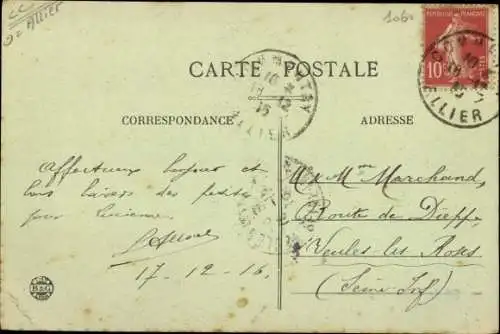 Allier
106
CARTE POSTALE
CORRESPONDANCE
ADRESSE
REPUBLIQUE FRANCAISE
10
ALLIER
Affectueux bonjour et
bons baisers des petits
pour Lucienne
17-12-16.
M & Mme Marchand,
Route de Dieppe
Veules les Roses
(Seine Inf)
B&G